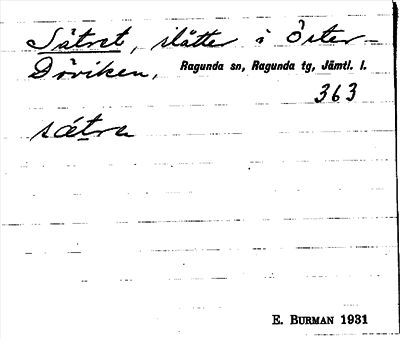 Sätret, slåtter i Öster-
Döviken, Ragunda sn, Ragunda tg, Jämtl. l.
363
sætra
E. BURMAN 1931